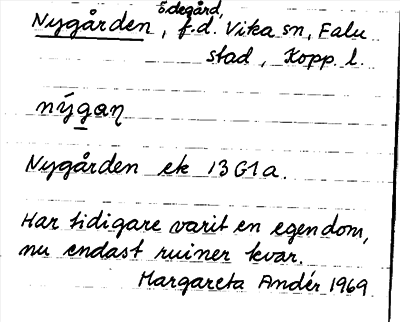 Nygården, ödegård, f.d. Vika sn, Falu
stad, Kopp. l.
nýgaņ
Nygården ek 13 G1 a.
Har tidigare varit en egendom,
nu endast ruiner kvar.
Margareta Andér 1969